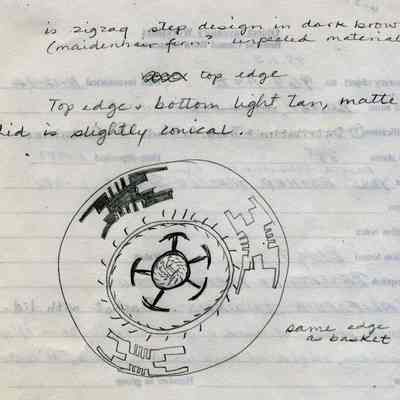 is zigzag step design in dark brow
(maidenhair fern? unpeeled material
top edge
Top edge + bottom light tan, matte
lid is slightly conical.
same edge
as basket